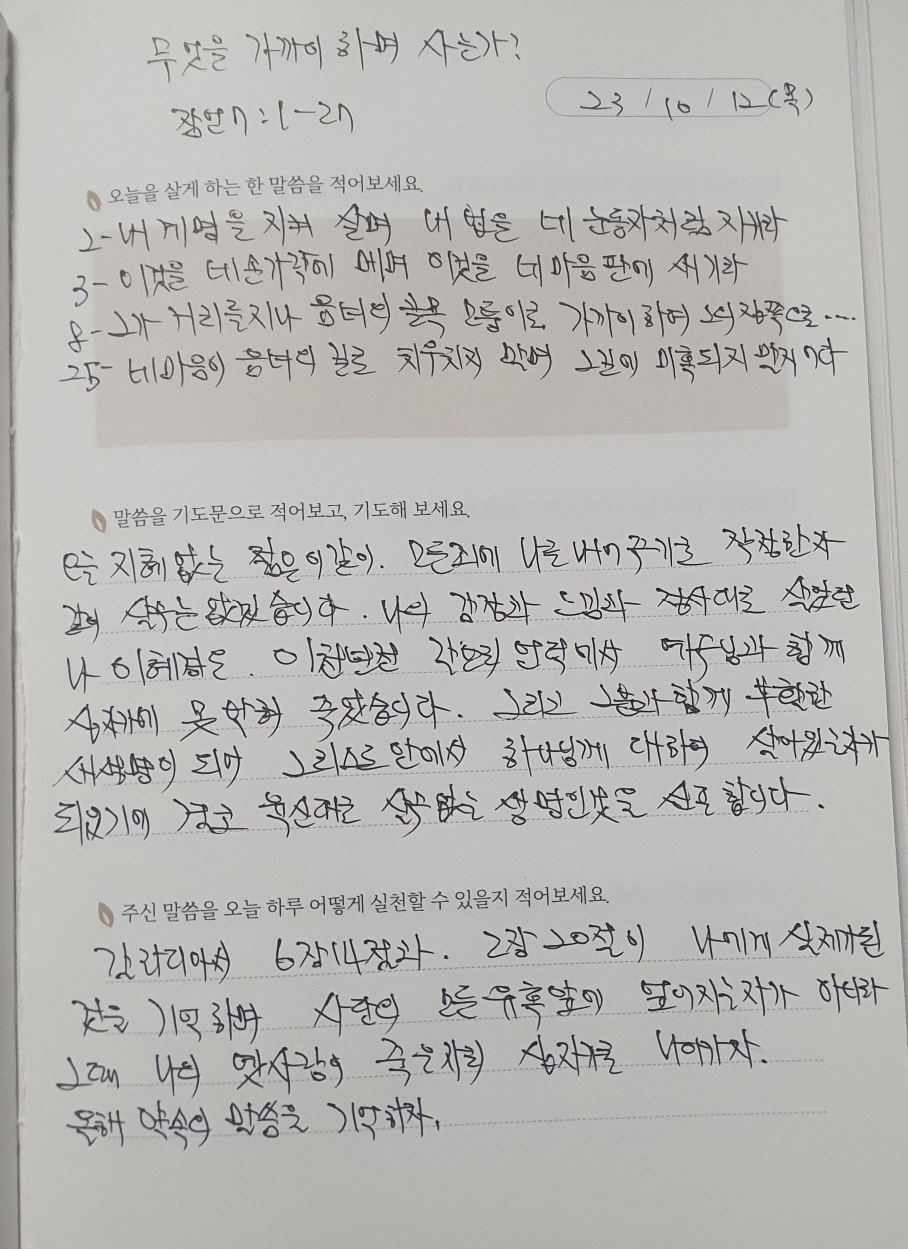 무엇을 가까이 하며 사는가?
잠언 7:1-27
23/10/12(목)
오늘을 살게 하는 한 말씀을 적어보세요.
2- 내 계명을 지켜 살며 내 법을 네 눈동자처럼 지켜라
3- 이것을 네 손가락에 매며 이것을 네 마음 판에 새기라
8- 그가 거리를 지나 음녀의 골목 모퉁이로 가까이 하여 그의 집쪽으로....
25- 네 마음이 음녀의 길로 치우치지 말며 그 길에 미혹되지 말지어다
말씀을 기도문으로 적어보고, 기도해 보세요.
오늘 지혜없는 젊은이같이. 모든죄에 나를 내어 주기로 작정한자
같이 살 수는 없습니다. 나의 감정과 느낌과 정서대로 살았던
나 이혜정은. 이천년전 갈보리 언덕에서 예수님과 함께
십자가에 못 박혀 죽었습니다. 그리고 그분과 함께 부활한
새생명이 되어 그리스도 안에서 하나님께 대하여 살아있는자가
되었기에 결코 육신대로 살 수 없는 생명인것을 선포합니다.
주신 말씀을 오늘 하루 어떻게 실천할 수 있을지 적어보세요.
갈라디아서 6장14절과. 2장 20절이 나에게 실제가된
것을 기억하며 사탄의 모든 유혹앞에 넘어지는자가 아니라
그때 나의 옛사람이 죽은자리 십자가로 나아가자.
올해 약속의 말씀을 기억하자.